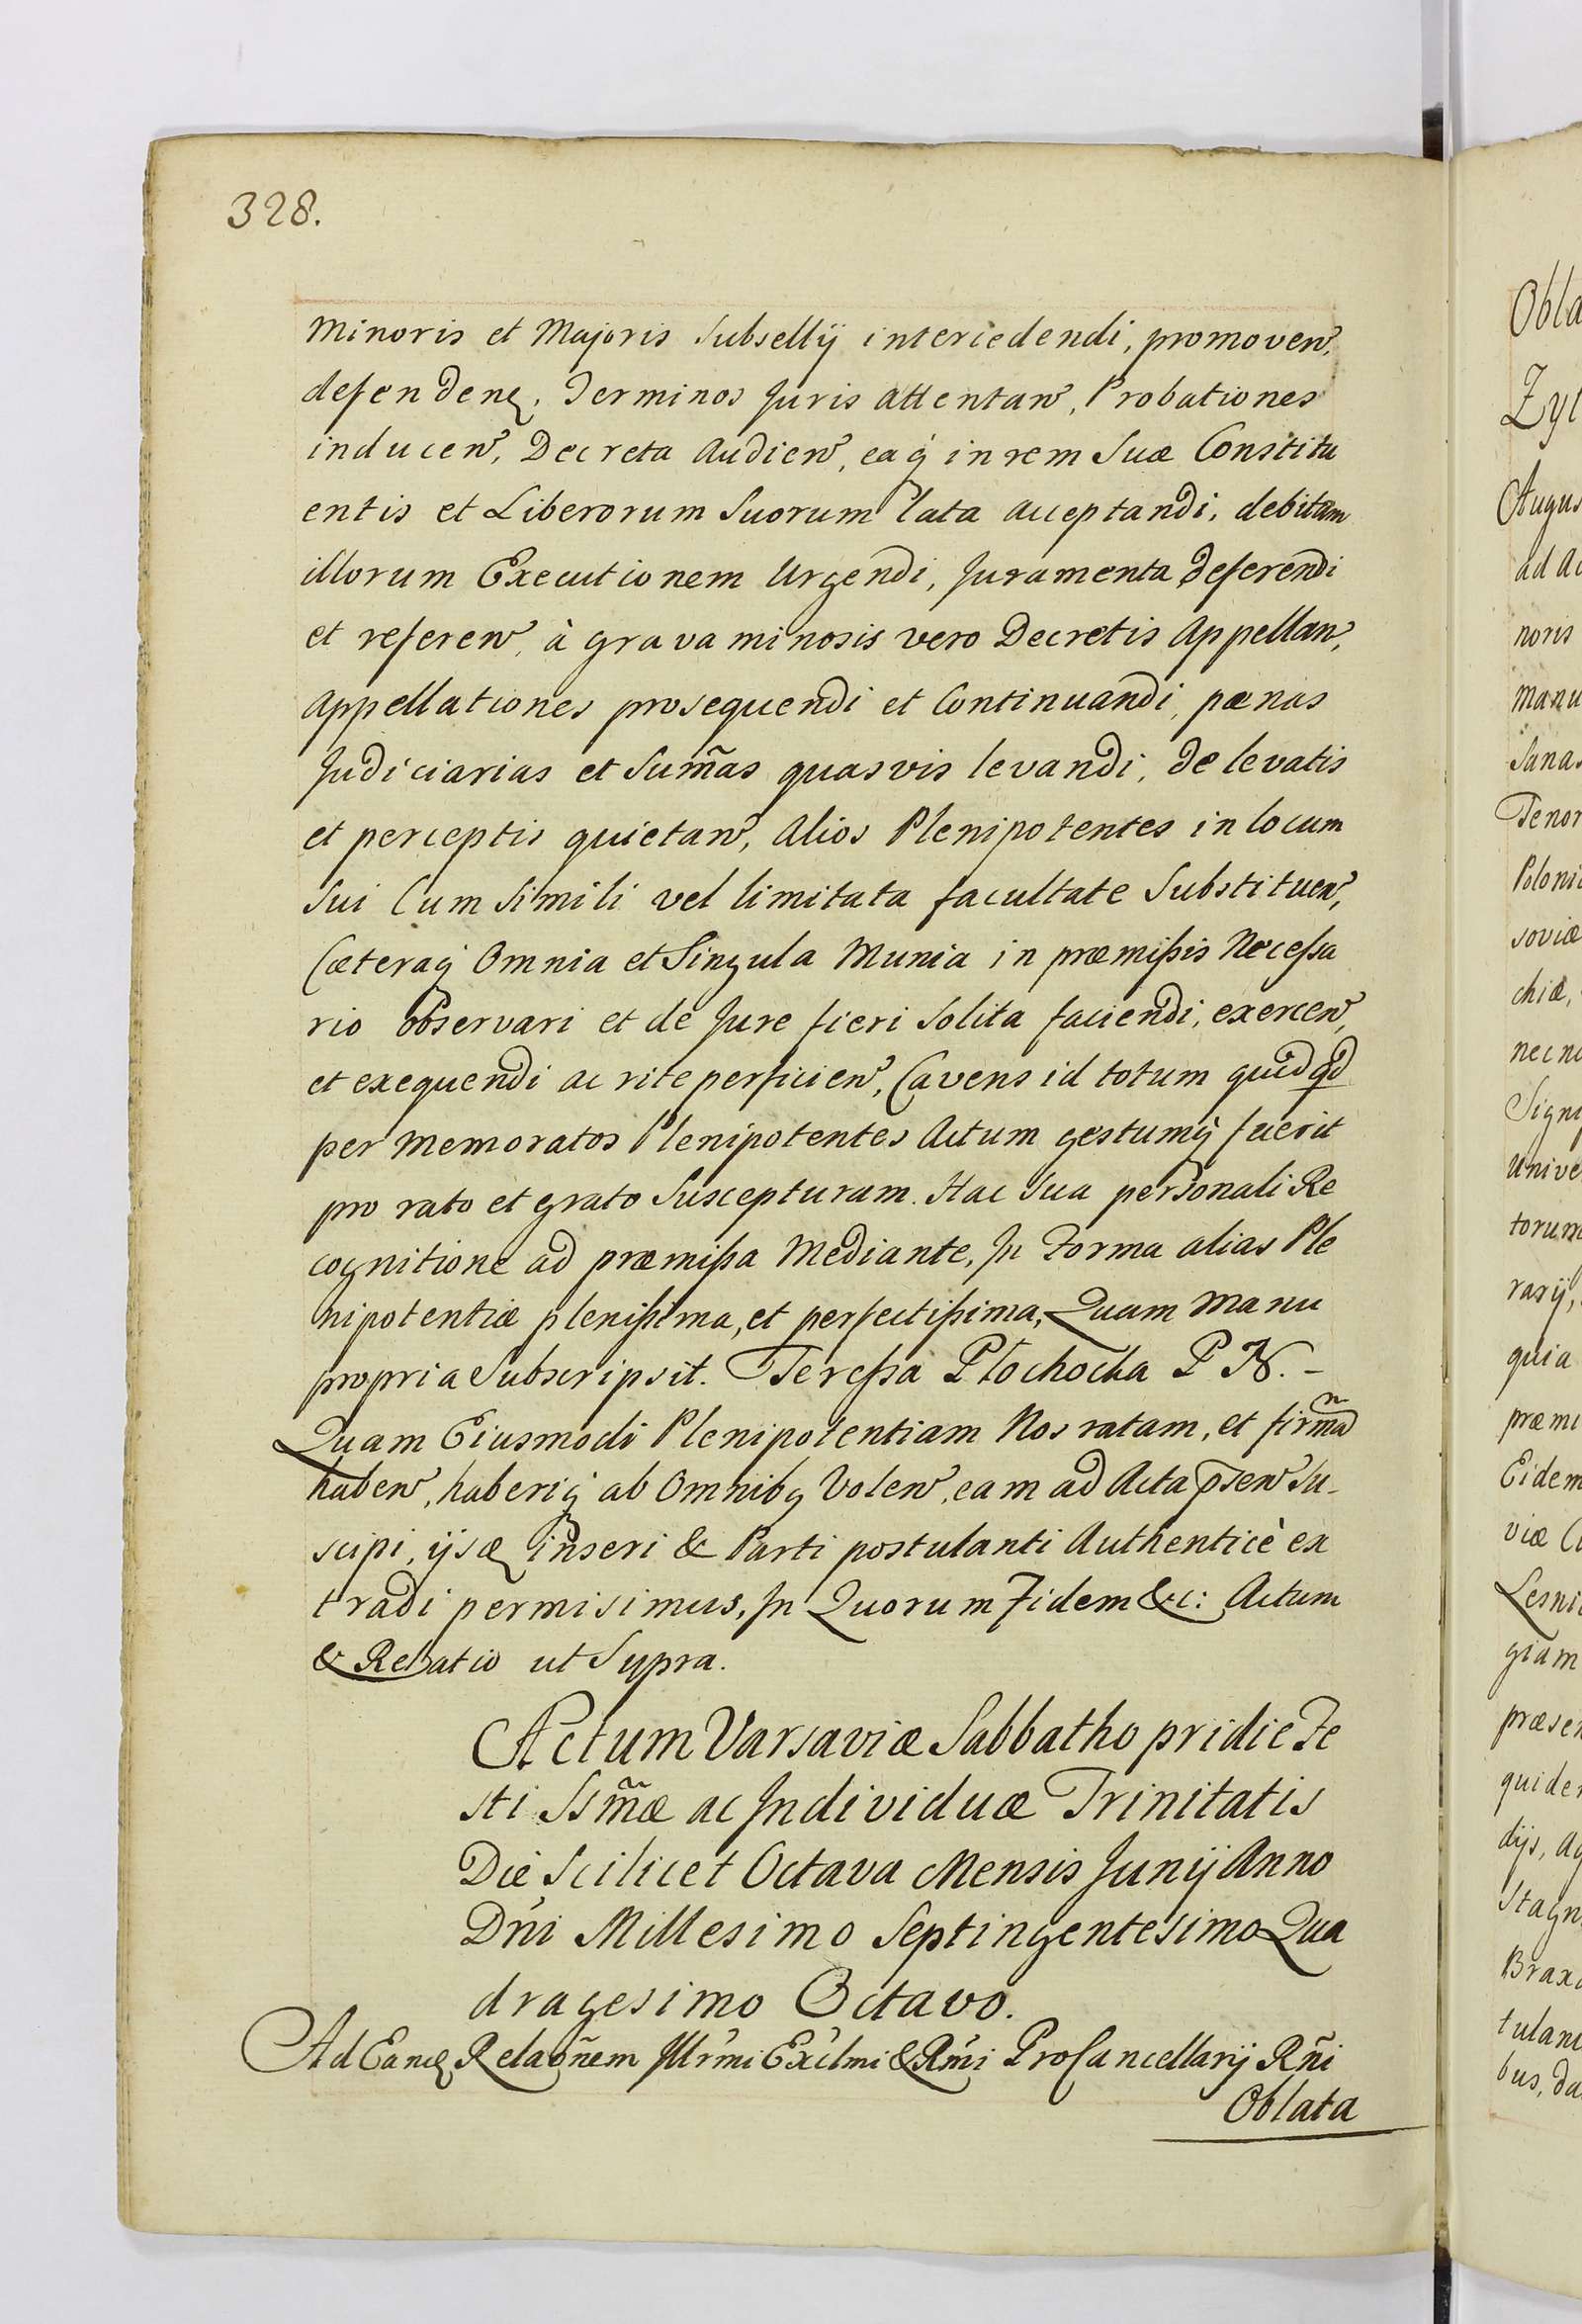 328.
Minoris et Majoris Subsellÿ intercedendi, promoven̄,
defendenɋ, Terminos Juris attentan̄, Probationes
inducen̄, Decreta Audien̄, eaq́ in rem Suæ Constitu
entis et Liberorum Suorum lata acceptandi, debitam
illorum Executionem Urgendi, Juramenta deferendi
et referen̄, à gravaminosis vero Decretis Appellan̄,
Appellationes prosequendi et Continuandi, pænas
Judiciarias et Sum̃as quasvis levandi, de levatis
et perceptis quietan̄, Alios Plenipotentes in locum
Sui Cum Simili vel limitata facultate Substituen̄,
Cæteraq́ Omnia et Singula Munia in præmißis Necessa
rio observari et de Jure fieri Solita faciendi, exercen̄,
et exequendi ac rite perficien̄, Cavens id totum quidqd
per Memoratos Plenipotentes Actum gestumq́ fuerit
pro rato et grato Suscepturam. Hac Sua personali Re
cognitione ad præmißa Mediante, In Forma alias Ple
nipotentiæ plenißima, et perfectißima, Quam Manu
propria Subscripsit. Tereßa Płochocka P N. -
Quam Eiusmodi Plenipotentiam Nos ratam, et firmã
haben̄, haberiq́ ab Omnibɋ Volen̄, eam ad Acta p̃sen̄ Su-
scipi, ijsɋ inseri & Parti postulanti Authenticè ex
tradi permisimus, In Quorum Fidem &c: Actum
& Relatio ut Supra.
Actum Varsaviæ Sabbatho pridie Fe
sti Ssm̃æ ac Individuæ Trinitatis
Die Scilicet Octava Mensis Junÿ Anno
Dńi Millesimo Septingentesimo Qua
dragesimo Octavo.
Ad Eanɋ Relaoñem Illŕmi Exćlmi & Rḿi ProCancellarij Rñi
Oblata
Obla
Zyt
Augus
ad Ac
noris
manu
Sana
Tenor
Poloni
soviæ
chiæ,
necno
Signi
Unive
torum
rarÿ,
quia
præmi
Eidem
viæ C
Lesni
giam
præsen
quide
dijs, ag
Stagn
Braxa
tulan
bus, da